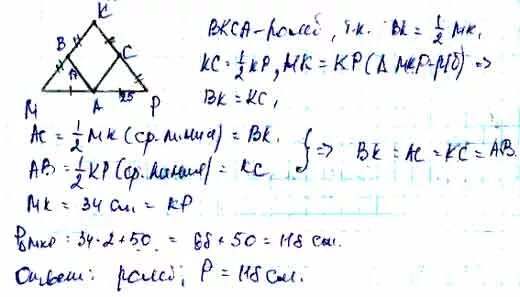 K
B
C
A
M
A
25
P
BKCA – ромб, т.к. BK = 1/2 MK,
KC = 1/2 KP, MK = KP (Δ MKP – р/б) =>
BK = KC,
AC = 1/2 MK (ср. линия) = BK.
AB = 1/2 KP (ср. линия) = KC
} => BK = AC = KC = AB.
MK = 34 см = KP
P MKP = 34·2+50 = 68+50 = 118 см.
Ответ: ромб; P = 118 см.